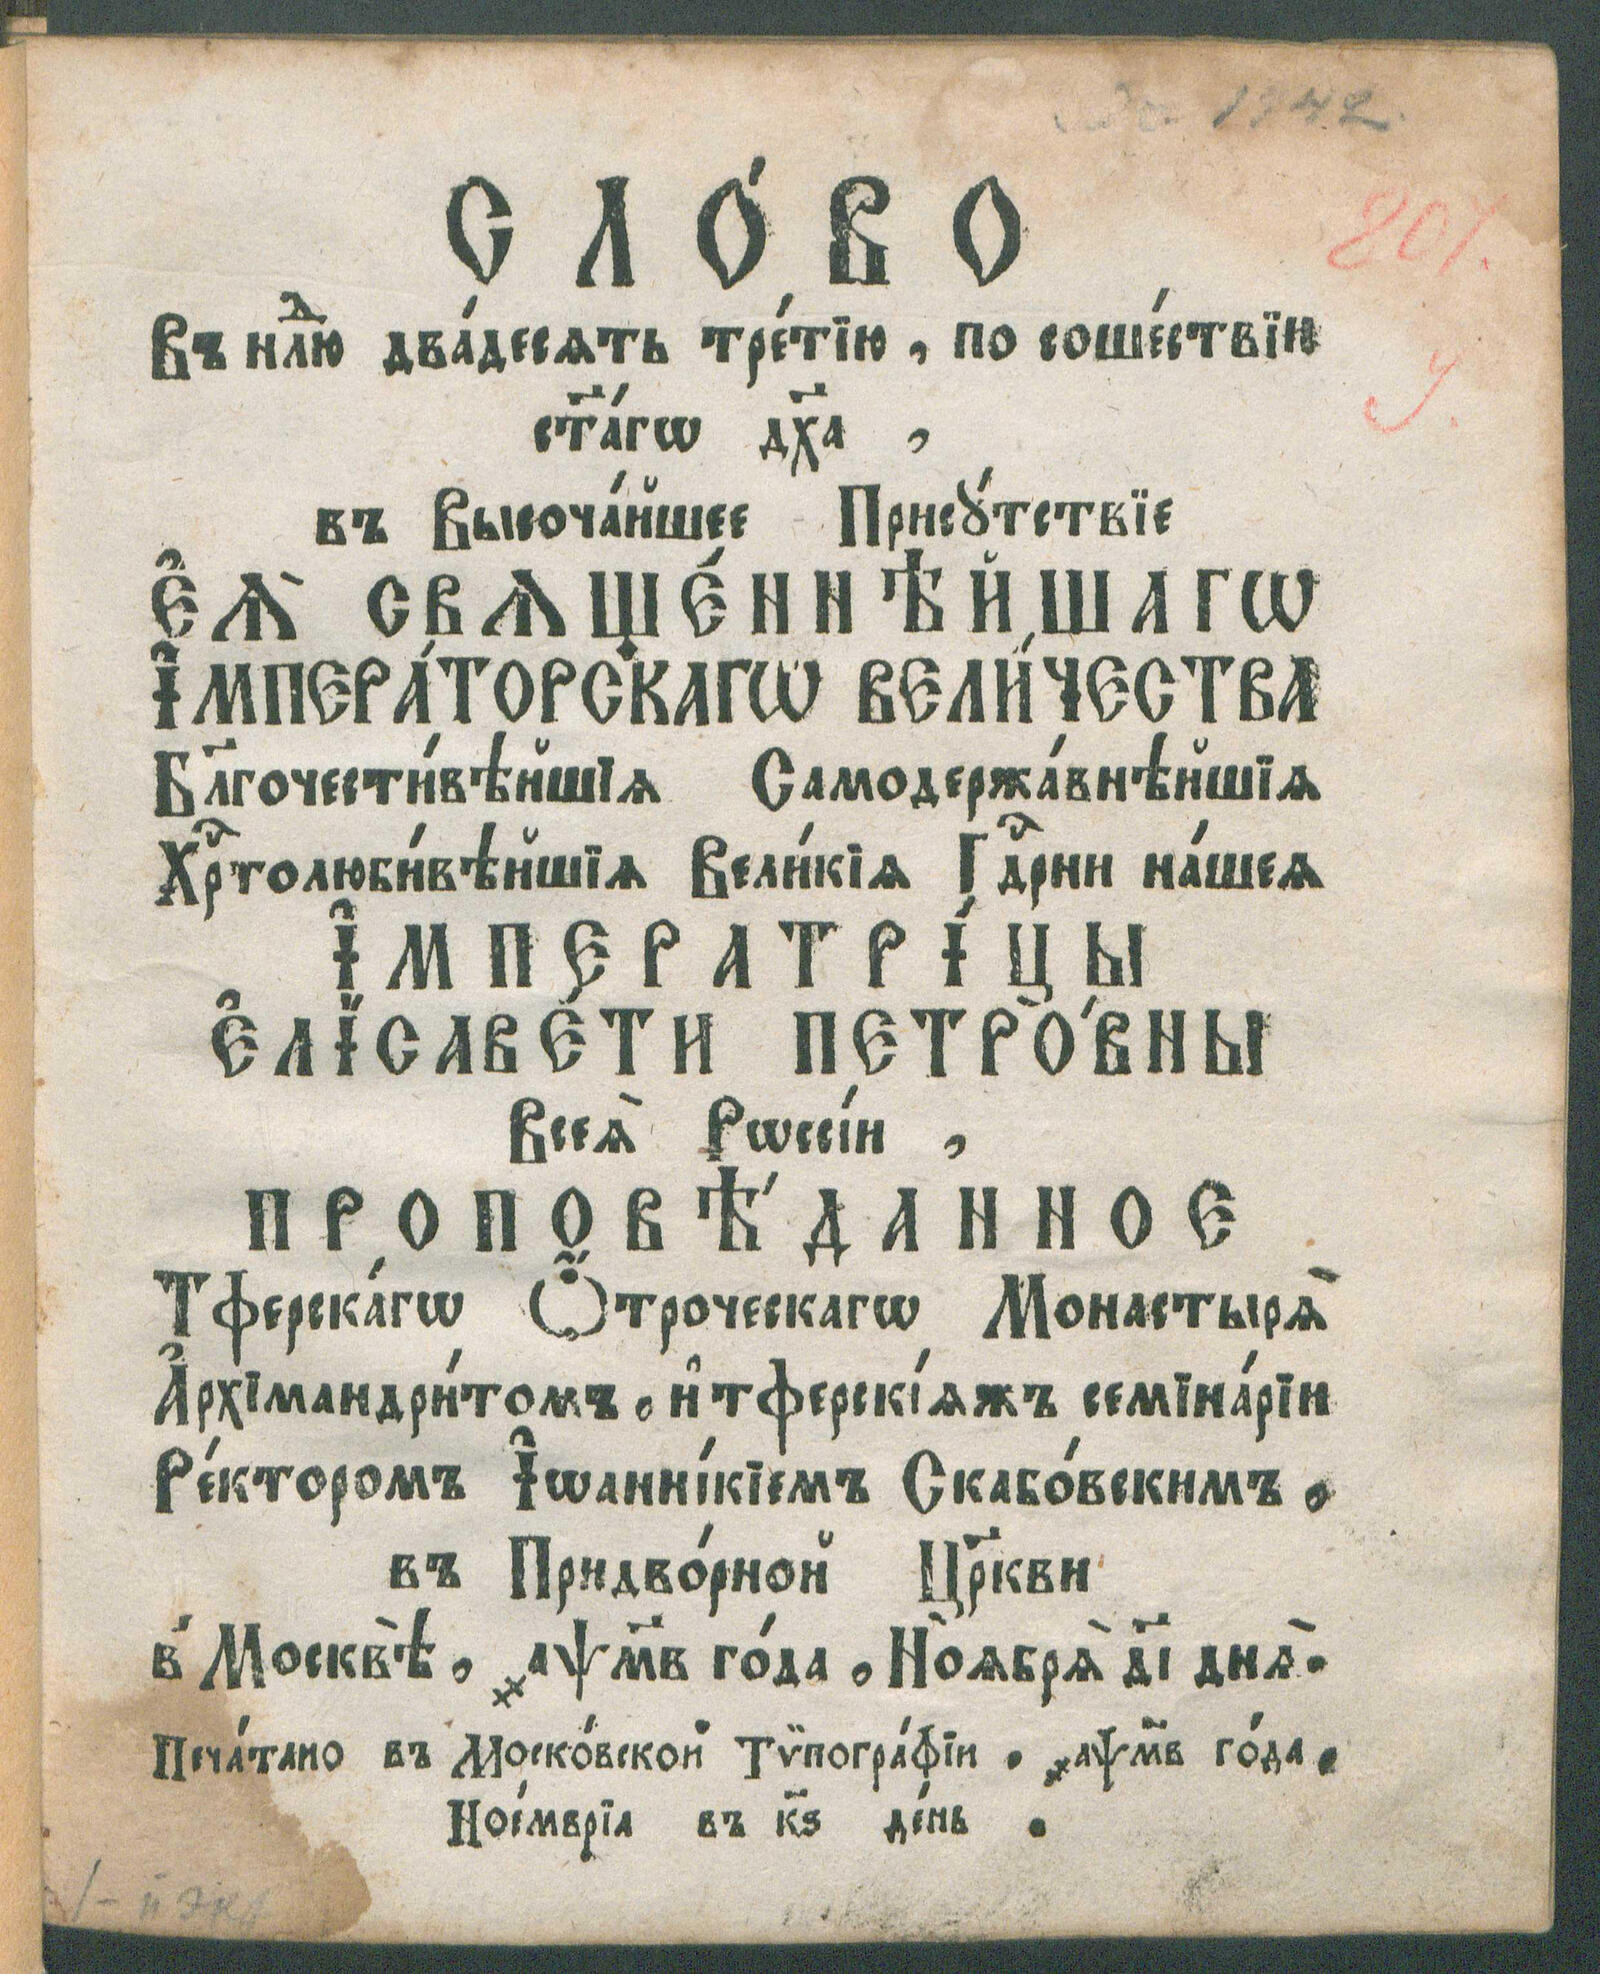 1742.
207.
У.
СЛО́ВО
Въ нл҃ⷣю два́десѧть тре́тїю, по соше́ствїи
ст҃а́гѡ дх҃а,
въ Высоча́йшее Прису́тствїе
Е҆Ѧ̀ СВѦЩЕ́ННѢЙШАГѠ
І҆МПЕРА́ТОРСКАГѠ ВЕЛИ́ЧЕСТВА
Бл҃гочести́вѣйшїѧ Самодержа́внѣйшїѧ
Хрⷭ҇толюби́вѣйшїѧ Вели́кїѧ Гдⷭ҇рни на́шеѧ
І҆МПЕРАТРІ́ЦЫ
Е҆ЛІСАВЕ́ТИ ПЕТРО́ВНЫ
Всеѧ̀ Рѡссі́и,
ПРОПОВѢ́ДАННОЕ
Тферска́гѡ Ѽтроческагѡ Монастырѧ̀
А҆рхїмандри́томъ, и҆ тферскі́ѧжъ семїна́рїи
Ре́кторомъ І҆ѡанні́кїемъ Скабо́вскимъ,
въ Придво́рной Цр҃кви
в̾ Москвѣ̀, ҂аѱм҃в го́да, Ноѧбрѧ̀ д҃і днѧ̀.
Печа́тано въ Моско́вской Тѷпогра́фїи. ҂аѱм҃в го́да.
Ное́мврїа въ к҃ѕ де́нь.
1-й экз